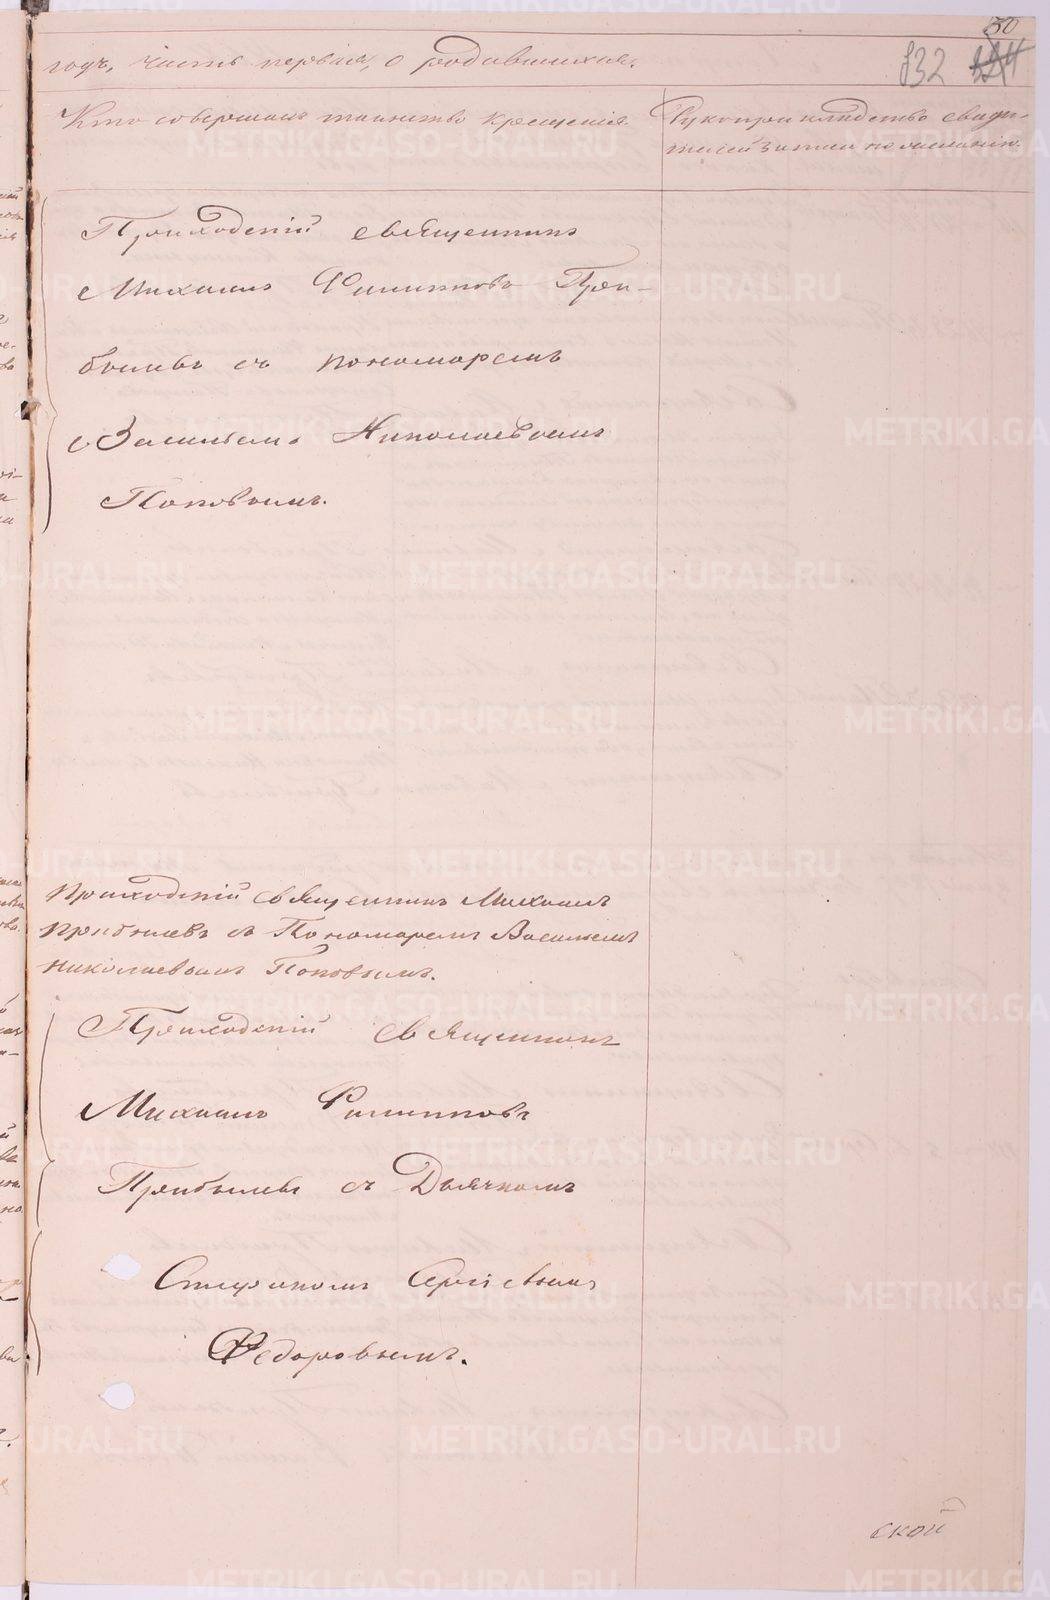 50
годъ, часть первая, о родившихся.
832
Кто совершалъ таинство крещенія.
Рукоприкладство свиде-
телей записи по желанію.
Приходскій священникъ
Михаилъ Филипповъ При-
былевъ съ пономаремъ
Васильемъ Николаевымъ
Поповымъ.
Приходскій священникъ Михаилъ
Прибылевъ съ Пономаремъ Васильемъ
Николаевымъ Поповымъ.
Приходскій священникъ
Михаилъ Филипповъ
Прибылевъ съ Дьячкомъ
Стефаномъ Сергіевымъ
Федоровымъ.
ской
METRIKI.GASO-URAL.RU